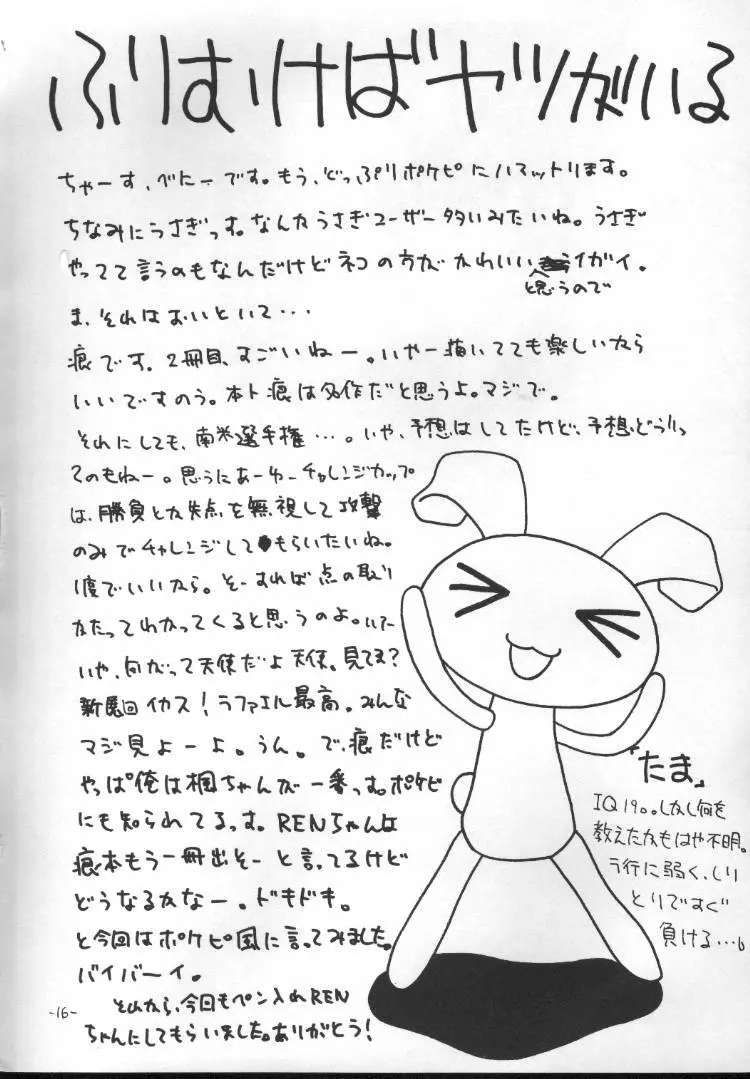 ふりむけばヤツがいる
ちゃーす、べにーです。もう、どっぷりポケピにハマットリます。
ちなみにうさぎっす。なんかうさぎユーザー多いみたいね。うさぎ
やってて言うのもなんだけどネコの方がかわいい
と思うので
イガイ。
ま、それはおいといて・・・
痕です。2冊目、すごいねー。いやー描いてても楽しいから
いいですのう。本ト痕は名作だと思うよ。マジで。
それにしても、南米選手権・・・。いや、予想はしてたけど、予想どうりっ
てのもねー。思うにあーゆーチャレンジカップ
は、勝負とか失点を無視して攻撃
のみでチャレンジしてもらいたいね。
1度でいいから。そーすれば点の取り
かたってわかってくると思うのよ。
いや、向かって天使だよ天使。見てる?
新魔回イカス!ラファエル最高。みんな
マジ見よーよ。うん。で、痕だけど
やっぱ俺は楓ちゃんが一番っす。ポケピ
にも知られてるっす。RENちゃんは
痕本もう一冊出そーと言ってるけど
どうなるかなー。ドキドキ。
と今回はポケピ風に言ってみました。
バイバーイ。
それから、今回もペン入れREN
ちゃんにしてもらいました。ありがとう!
「たま」
IQ190。しかし何を
教えたかもはや不明。
ラ行に弱く、しり
とりですぐ
負ける…。
-16-